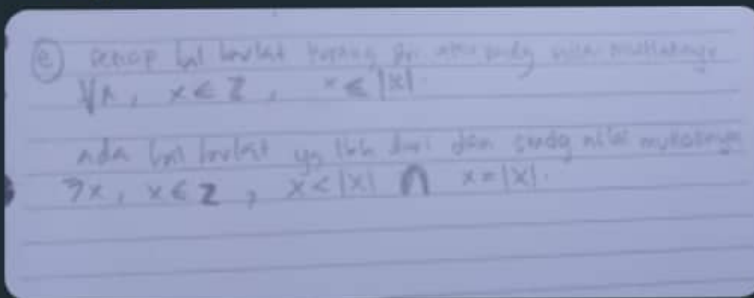 (e) setiap bil bulat kurang dri atau sama nilai mutlaknya
∀x, x ∈ Z, x ≤ |x|.
ada bil bulat yg lbh dari dan sama nilai mutlaknya
∃x, x ∈ Z, x < |x| ∩ x = |x|.